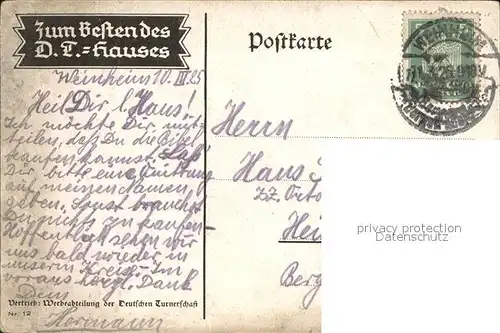 Zum Besten des
D. T.=Hauses
Postkarte
WEINHEIM
Weinheim 10. III. 25
Heil Dir l. Haus!
Ich möchte Dir mit-
teilen, daß Du die Bibel
kaufen kannst. Laß
Dir bitte eine Quittung
auf meinen Namen
geben. Sonst brauchst
Du nichts zu kaufen.
Hoffentlich sehen wir
uns bald wieder in
unserm Kreise. Im
voraus herzl. Dank
Dein
Hermann
Herrn
Haus
zz.
Hei
Berg
privacy protection
Datenschutz
Vertrieb: Werbeabteilung der Deutschen Turnerschaft
Nr. 12